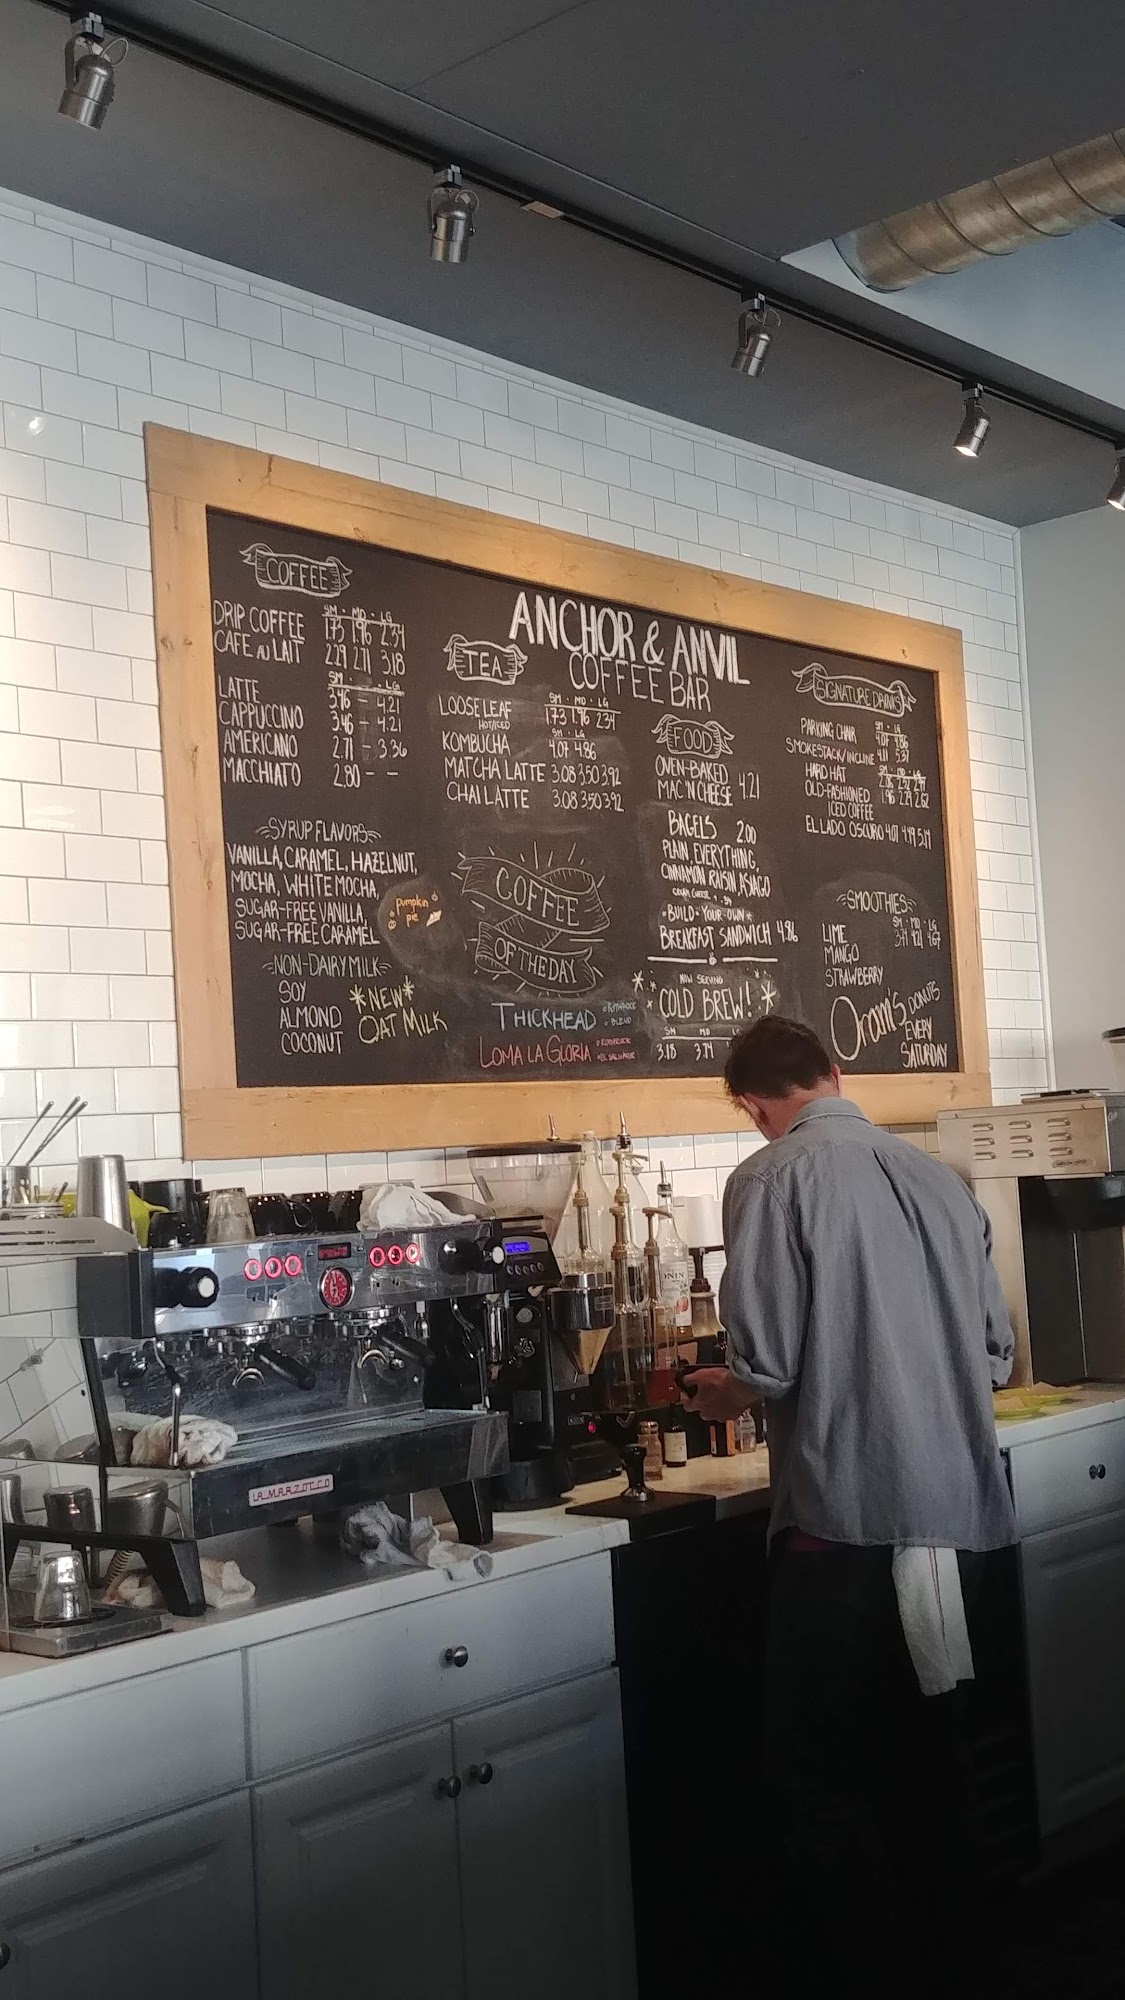 COFFEE
SM · MD · LG
DRIP COFFEE 1.73 1.96 2.34
CAFE AU LAIT 2.29 2.71 3.18
SM LG
LATTE 3.46 – 4.21
CAPPUCCINO 3.46 – 4.21
AMERICANO 2.71 – 3.36
MACCHIATO 2.80 – –
SYRUP FLAVORS
VANILLA, CARAMEL, HAZELNUT,
MOCHA, WHITE MOCHA,
SUGAR-FREE VANILLA,
SUGAR-FREE CARAMEL
pumpkin
pie
NON-DAIRY MILK
SOY
ALMOND
COCONUT
*NEW*
OAT MILK
ANCHOR & ANVIL
COFFEE BAR
TEA
SM · MD · LG
LOOSE LEAF 1.73 1.96 2.34
HOT/ICED
SM · LG
KOMBUCHA 4.07 4.86
MATCHA LATTE 3.08 3.50 3.92
CHAI LATTE 3.08 3.50 3.92
COFFEE
OF THE DAY
THICKHEAD • ROTHROCK
• BLEND
LOMA LA GLORIA • ROTHROCK
• EL SALVADOR
FOOD
OVEN-BAKED
MAC 'N CHEESE 4.21
BAGELS 2.00
PLAIN, EVERYTHING,
CINNAMON RAISIN, ASIAGO
CREAM CHEESE
• BUILD-YOUR-OWN •
BREAKFAST SANDWICH 4.86
NOW SERVING
COLD BREW!
SM MD
3.18 3.74
SIGNATURE DRINKS
SM · LG
PARKING CHAIR 4.07 4.86
SMOKESTACK/INCLINE 4.11 5.37
SM · MD · LG
HARD HAT
OLD-FASHIONED
ICED COFFEE
EL LADO OSCURO 4.07 4.49 5.14
SMOOTHIES
SM · MD · LG
LIME 3.74 4.21 4.67
MANGO
STRAWBERRY
Oram's DONUTS
EVERY
SATURDAY
LA MARZOCCO